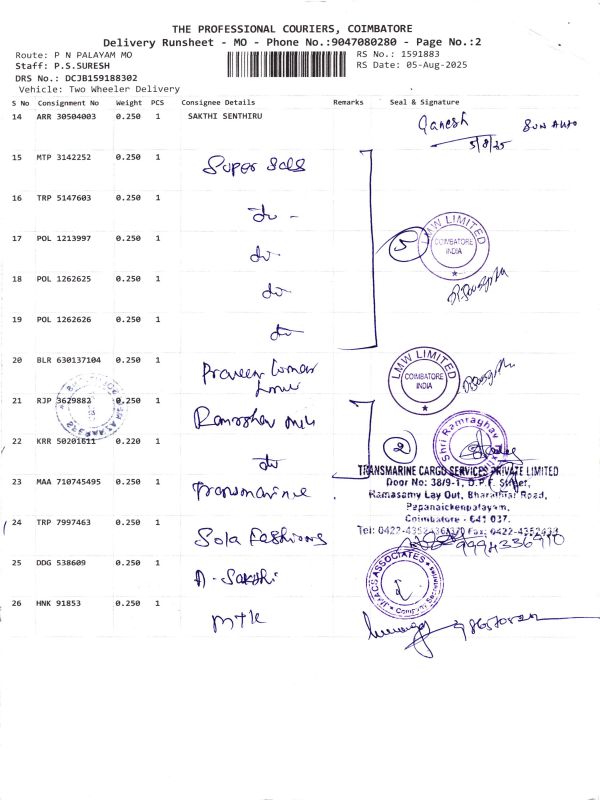 THE PROFESSIONAL COURIERS, COIMBATORE
Delivery Runsheet - MO - Phone No.:9047080280 - Page No.:2
Route: P N PALAYAM MO
RS No.: 1591883
Staff: P.S.SURESH
RS Date: 05-Aug-2025
DRS No.: DCJB159188302
Vehicle: Two Wheeler Delivery
S No Consignment No Weight PCS Consignee Details Remarks Seal & Signature
14 ARR 30504003 0.250 1 SAKTHI SENTHIRU Ganesh SUN AUTO
5/8/25
15 MTP 3142252 0.250 1 Super Sales
16 TRP 5147603 0.250 1 do -
17 POL 1213997 0.250 1 do 5
LMW LIMITED
COIMBATORE
INDIA
18 POL 1262625 0.250 1 do
19 POL 1262626 0.250 1 do
20 BLR 630137104 0.250 1 Praveen Kumar
LMW LIMITED
COIMBATORE
INDIA
21 RJP 3629882 0.250 1
22 KRR 50201611 0.220 1 do 2
Shri Ramraghav
TRANSMARINE CARGO SERVICES PRIVATE LIMITED
Door No: 38/9-1, D.P.F. Street,
Ramasamy Lay Out, Bharathiar Road,
Papanaickenpalayam,
Coimbatore - 641 037.
23 MAA 710745495 0.250 1 Transmarine
24 TRP 7997463 0.250 1 Sola Fashions
25 DDG 538609 0.250 1 A. Sakthi
ASSOCIATES
26 HNK 91853 0.250 1 MTK